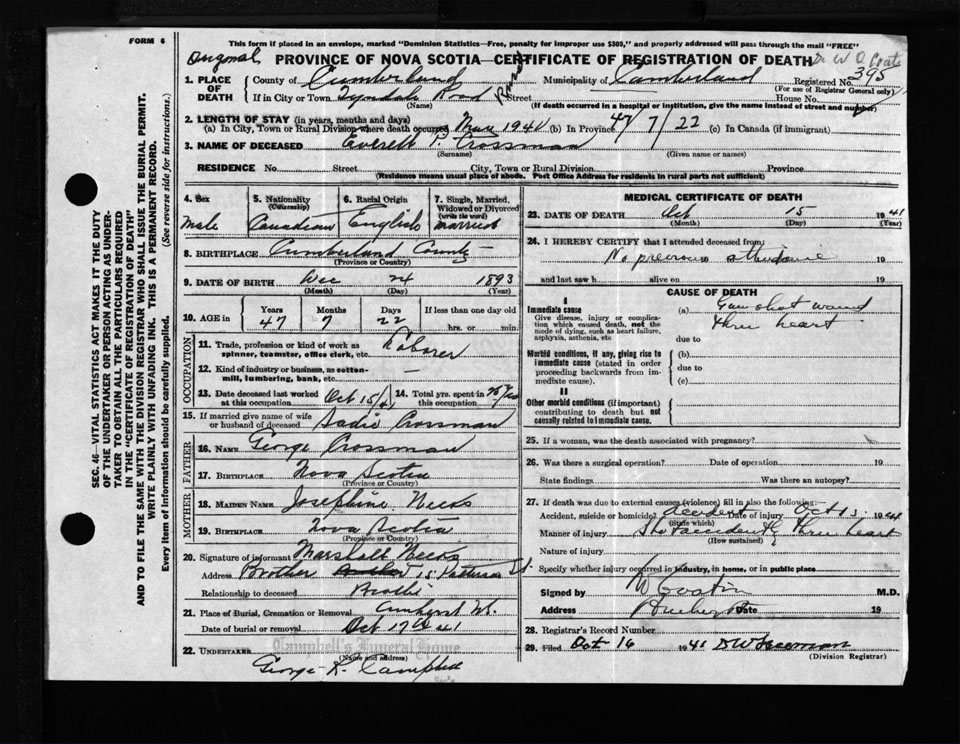 FORM 6
This form if placed in an envelope, marked "Dominion Statistics—Free, penalty for improper use $300," and properly addressed will pass through the mail "FREE"
Original
PROVINCE OF NOVA SCOTIA—CERTIFICATE OF REGISTRATION OF DEATH
Dr W O Coates
1. PLACE OF DEATH
County of Cumberland Municipality of Cumberland Registered No. 395
(For use of Registrar General only)
If in City or Town Tyndale Road Street House No.
(Name) (If death occurred in a hospital or institution, give the name instead of street and number)
2. LENGTH OF STAY (in years, months and days)
(a) In City, Town or Rural Division where death occurred 1941 (b) In Province 47 / 7 / 22 (c) In Canada (if immigrant)
3. NAME OF DECEASED Everett P. Crossman
(Surname) (Given name or names)
RESIDENCE No. Street City, Town or Rural Division Province
(Residence means usual place of abode. Post Office Address for residents in rural parts not sufficient)
4. Sex
Male
5. Nationality
(Citizenship)
Canadian
6. Racial Origin
English
7. Single, Married, Widowed or Divorced
(write the word)
married
8. BIRTHPLACE Cumberland County
(Province or Country)
9. DATE OF BIRTH Dec 24 1893
(Month) (Day) (Year)
10. AGE in Years Months Days If less than one day old
47 7 22 hrs. or min.
OCCUPATION
11. Trade, profession or kind of work as spinner, teamster, office clerk, etc. Laborer
12. Kind of industry or business, as cotton-mill, lumbering, bank, etc. —
13. Date deceased last worked at this occupation Oct 15/41
14. Total yrs. spent in this occupation
15. If married give name of wife or husband of deceased Sadie Crossman
FATHER
16. NAME George Crossman
17. BIRTHPLACE Nova Scotia
(Province or Country)
MOTHER
18. MAIDEN NAME Josephine Weeks
19. BIRTHPLACE Nova Scotia
(Province or Country)
20. Signature of informant Marshall Weeks
Address Brother 15 St.
Relationship to deceased Brother
21. Place of Burial, Cremation or Removal Amherst
Date of burial or removal Oct 17 41
Campbell's Funeral Home
22. UNDERTAKER
(Name and address)
George K. Campbell
MEDICAL CERTIFICATE OF DEATH
23. DATE OF DEATH Oct 15 1941
(Month) (Day) (Year)
24. I HEREBY CERTIFY that I attended deceased from:
No previous attendance 19
and last saw h alive on 19
CAUSE OF DEATH
I
Immediate cause
Give disease, injury or complication which caused death, not the mode of dying, such as heart failure, asphyxia, asthenia, etc
(a) Gun shot wound
thru heart
due to
Morbid conditions, if any, giving rise to immediate cause (stated in order proceeding backwards from immediate cause).
(b)
due to
(c)
II
Other morbid conditions (if important) contributing to death but not causally related to immediate cause.
25. If a woman, was the death associated with pregnancy?
26. Was there a surgical operation? Date of operation 19
State findings Was there an autopsy?
27. If death was due to external causes (violence) fill in also the following:—
Accident, suicide or homicide? accident Date of injury Oct 15 1941
(State which)
Manner of injury Shot accidently thru heart
(How sustained)
Nature of injury
Specify whether injury occurred in industry, in home, or in public place
Signed by M.D.
Address Amherst Date 19
28. Registrar's Record Number
29. Filed Oct 16 1941
(Division Registrar)
SEC. 46—VITAL STATISTICS ACT MAKES IT THE DUTY
OF THE UNDERTAKER OR PERSON ACTING AS UNDER-
TAKER TO OBTAIN ALL THE PARTICULARS REQUIRED
IN THE "CERTIFICATE OF REGISTRATION OF DEATH"
AND TO FILE THE SAME WITH THE DIVISION REGISTRAR WHO SHALL ISSUE THE BURIAL PERMIT.
WRITE PLAINLY WITH UNFADING INK. THIS IS A PERMANENT RECORD.
Every item of information should be carefully supplied. (See reverse side for instructions.)